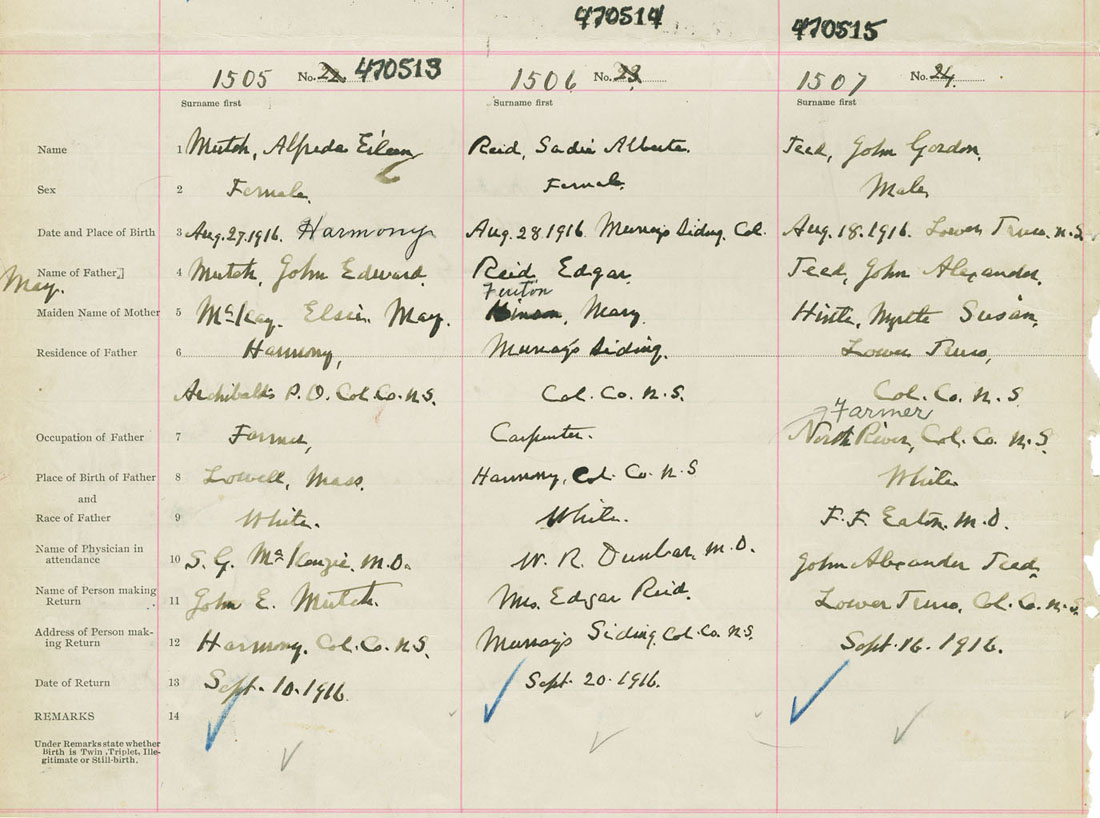 470514 470515
1505 No. 22. 470513 1506 No. 23 1507 No. 24.
Surname first Surname first Surname first
Name 1 Mutch, Alfreda Eileen Reid, Sadie Alberta. Teed, John Gordon,
Sex 2 Female. Female. Male
Date and Place of Birth 3 Aug. 27. 1916. Harmony Aug. 28. 1916 Murray's Siding, Col. Aug. 18. 1916. Lower Truro. N.S.
Name of Father, 4 Mutch, John Edward. Reid, Edgar, Teed, John Alexander,
May. Fenton
Maiden Name of Mother 5 McKay. Elsie May. Mary. Myrtle Susan,
Residence of Father 6 Harmony, Murray's Siding. Lower Truro,
Archibalds P.O. Col. Co. N.S. Col. Co. N.S. Col. Co. N.S.
Farmer
Occupation of Father 7 Farmer, Carpenter. North River, Col. Co. N.S.
Place of Birth of Father 8 Lowell, Mass. Harmony, Col. Co. N.S White
and
Race of Father 9 White. White. F. F. Eaton. M.D.
Name of Physician in
attendance 10 S. G. McKenzie, M.D. W. R. Dunbar, M.D. John Alexander Teed,
Name of Person making
Return 11 John E. Mutch. Mrs. Edgar Reid. Lower Truro, Col. Co. N.S.
Address of Person mak-
ing Return 12 Harmony, Col. Co. N.S. Murray's Siding Col. Co. N.S. Sept. 16. 1916.
Date of Return 13 Sept. 10. 1916. Sept. 20. 1916.
REMARKS 14
Under Remarks state whether
Birth is Twin, Triplet, Ille-
gitimate or Still-birth.